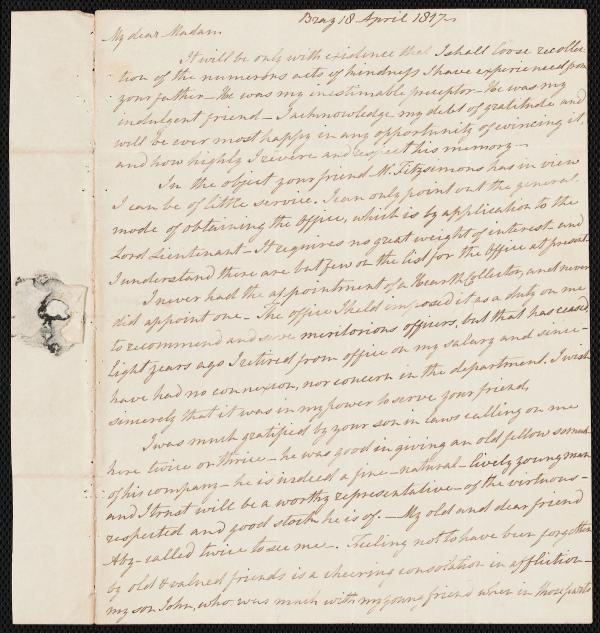 Bray 18 April 1817
My dear Madam
It will be only with existence that I shall loose recollec-
tion of the numerous acts of kindness I have experienced from
your father - He was my inestimable preceptor - He was my
indulgent friend - I acknowledge my debt of gratitude and
will be ever most happy in any opportunity of evincing it,
and how highly I revere and respect his memory -
In the object your friend Mr. Fitzsimons has in view
I can be of little service. I can only point out the general
mode of obtaining the Office, which is by application to the
Lord Lieutenant - It requires no great weight of interest - and
I understand there are but few on the list for the Office at present
I never had the appointment of a Hearth Collector, and never
did appoint one - The office I held imposed it as a duty on me
to recommend and serve meritorious officers, but that has ceased
Eight years ago I retired from office on my salary and since
have had no connexion, nor concern in the department. I wish
sincerely that it was in my power to serve your friend,
I was much gratified by your son in laws calling on me
here twice or thrice - he was good in giving an old fellow so much
of his company - he is indeed a fine - natural - lively young man
and I trust will be a worthy representative of the virtuous -
respected and good stock he is of. - My old and dear friend
Aby - called twice to see me -. Feeling not to have been forgotten
by old & valued friends is a cheering consolation in affliction -
my son John, who was much with my young friend when in those parts